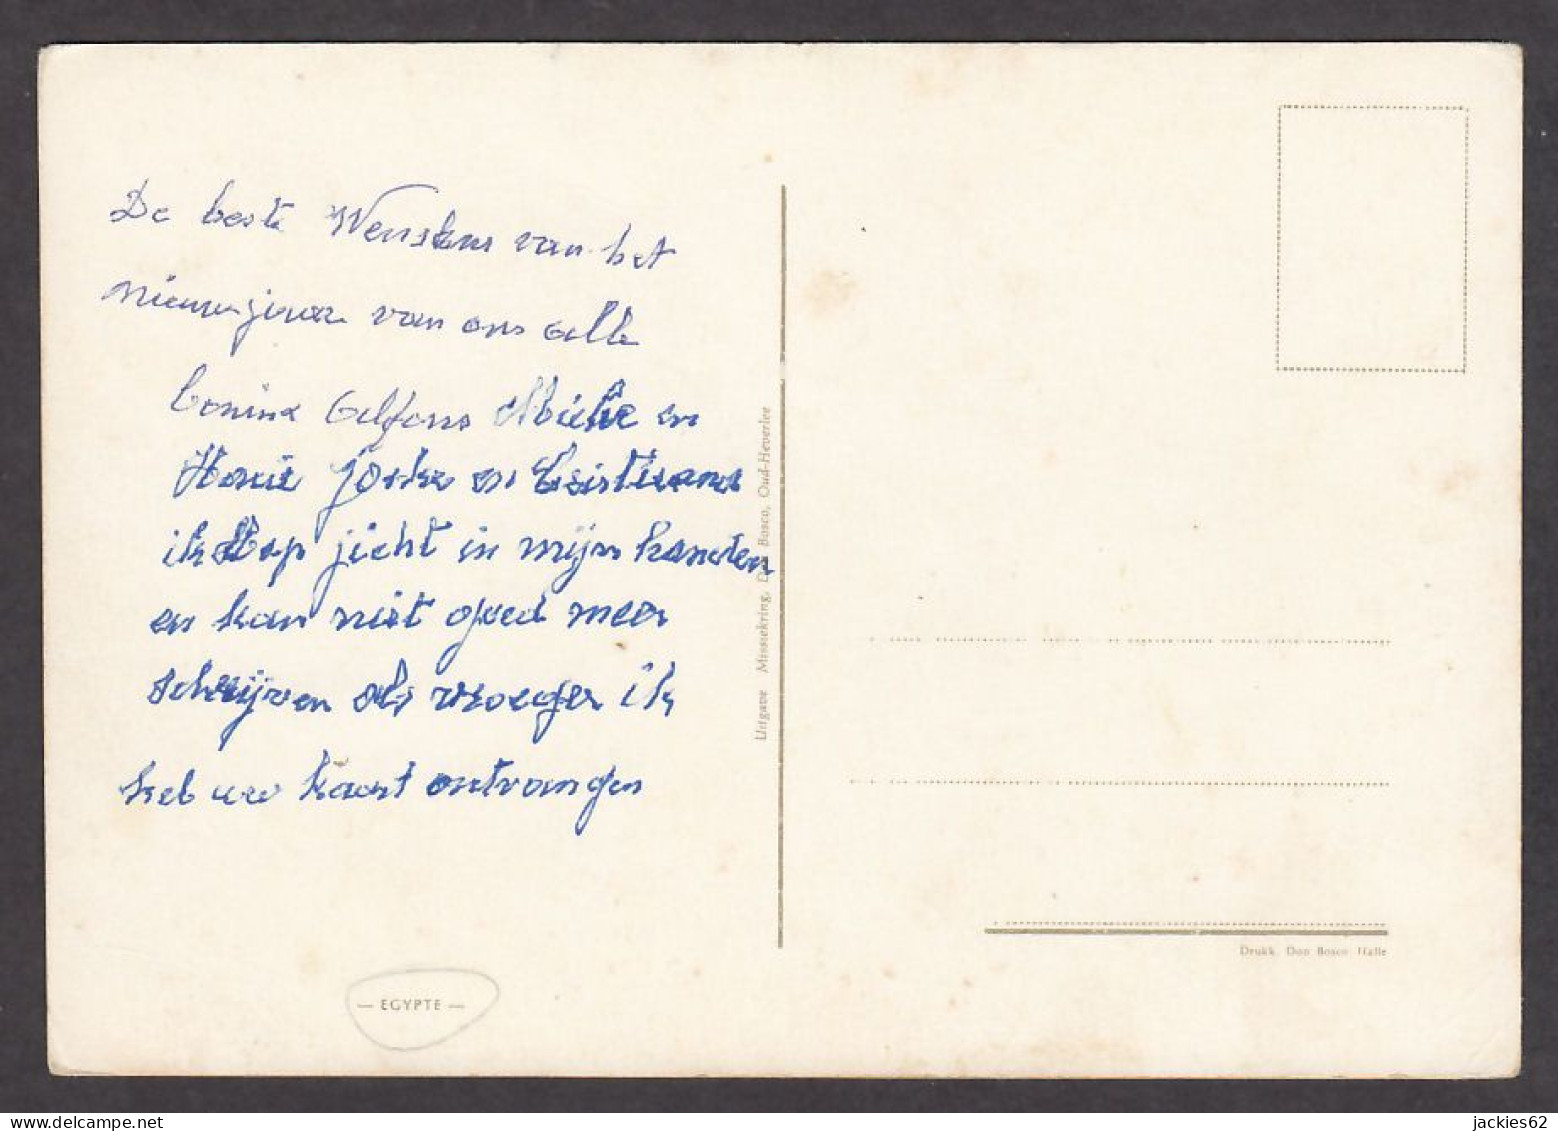 De beste Wensken van het
nieuwjaar van ons alle
Alfons en
en
ik heb jicht in mijn handen
en kan niet goed meer
schrijven als vroeger ik
heb uw kaart ontvangen
— EGYPTE —
Uitgave Missiekring, Don Bosco, Oud-Heverlee
Drukk. Don Bosco Halle
jackies62